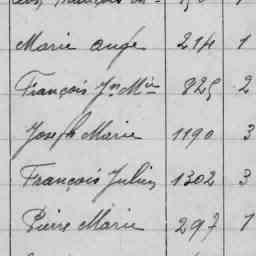 Marie ange 214 1
François Jn Mie 825 2
Joseph Marie 1190 3
François Julien 1302 3
Pierre Marie 297 1